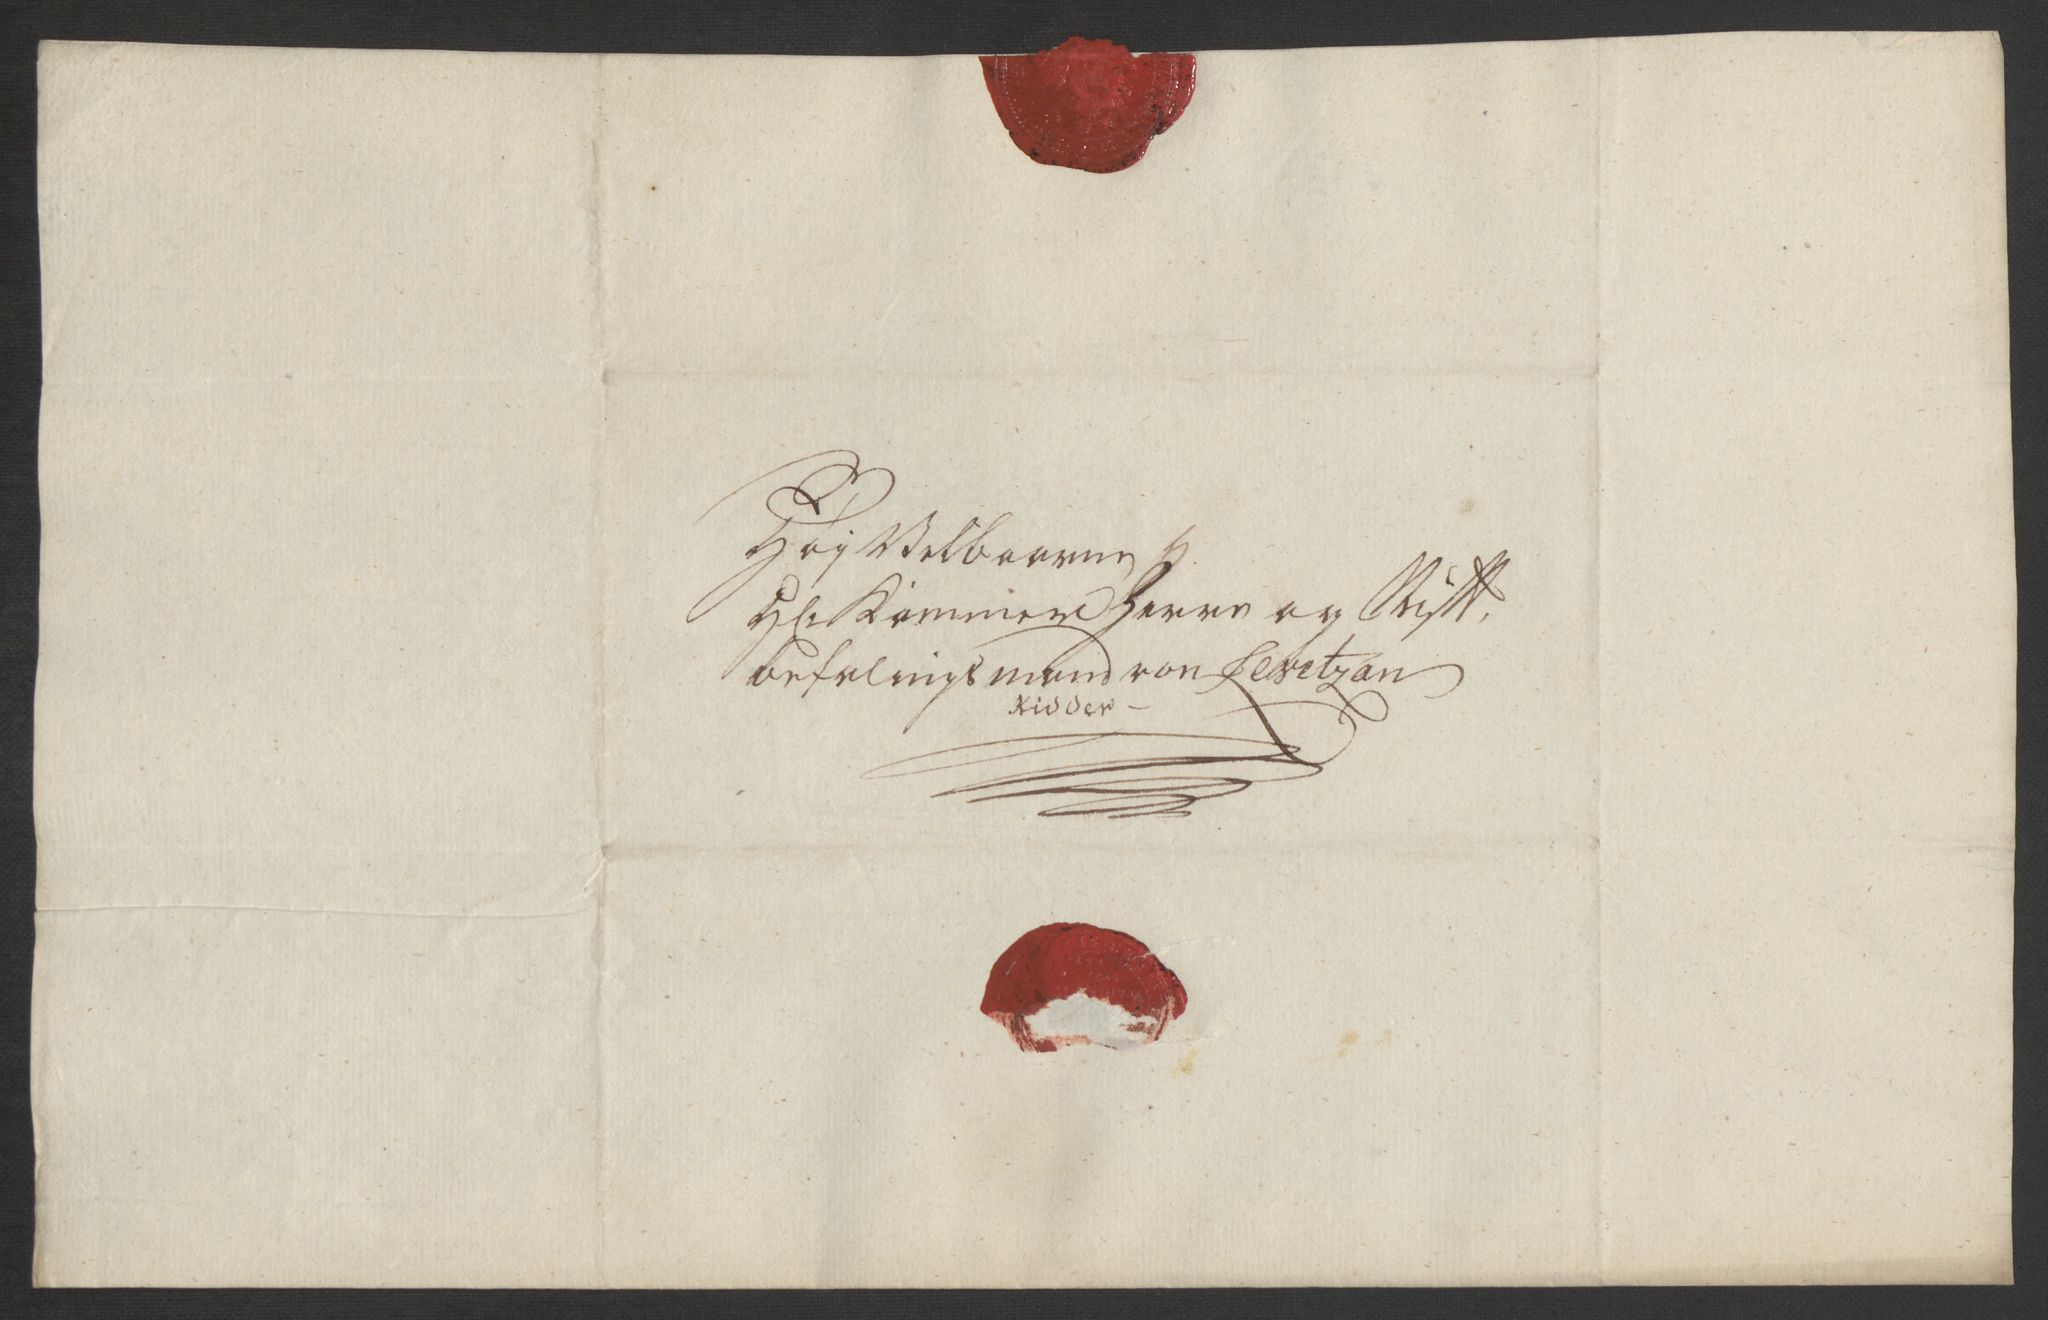 Høy Velbaarne
Hr Kammer Herre og Stift,
befalingsmand von Levetzau
Ridder –